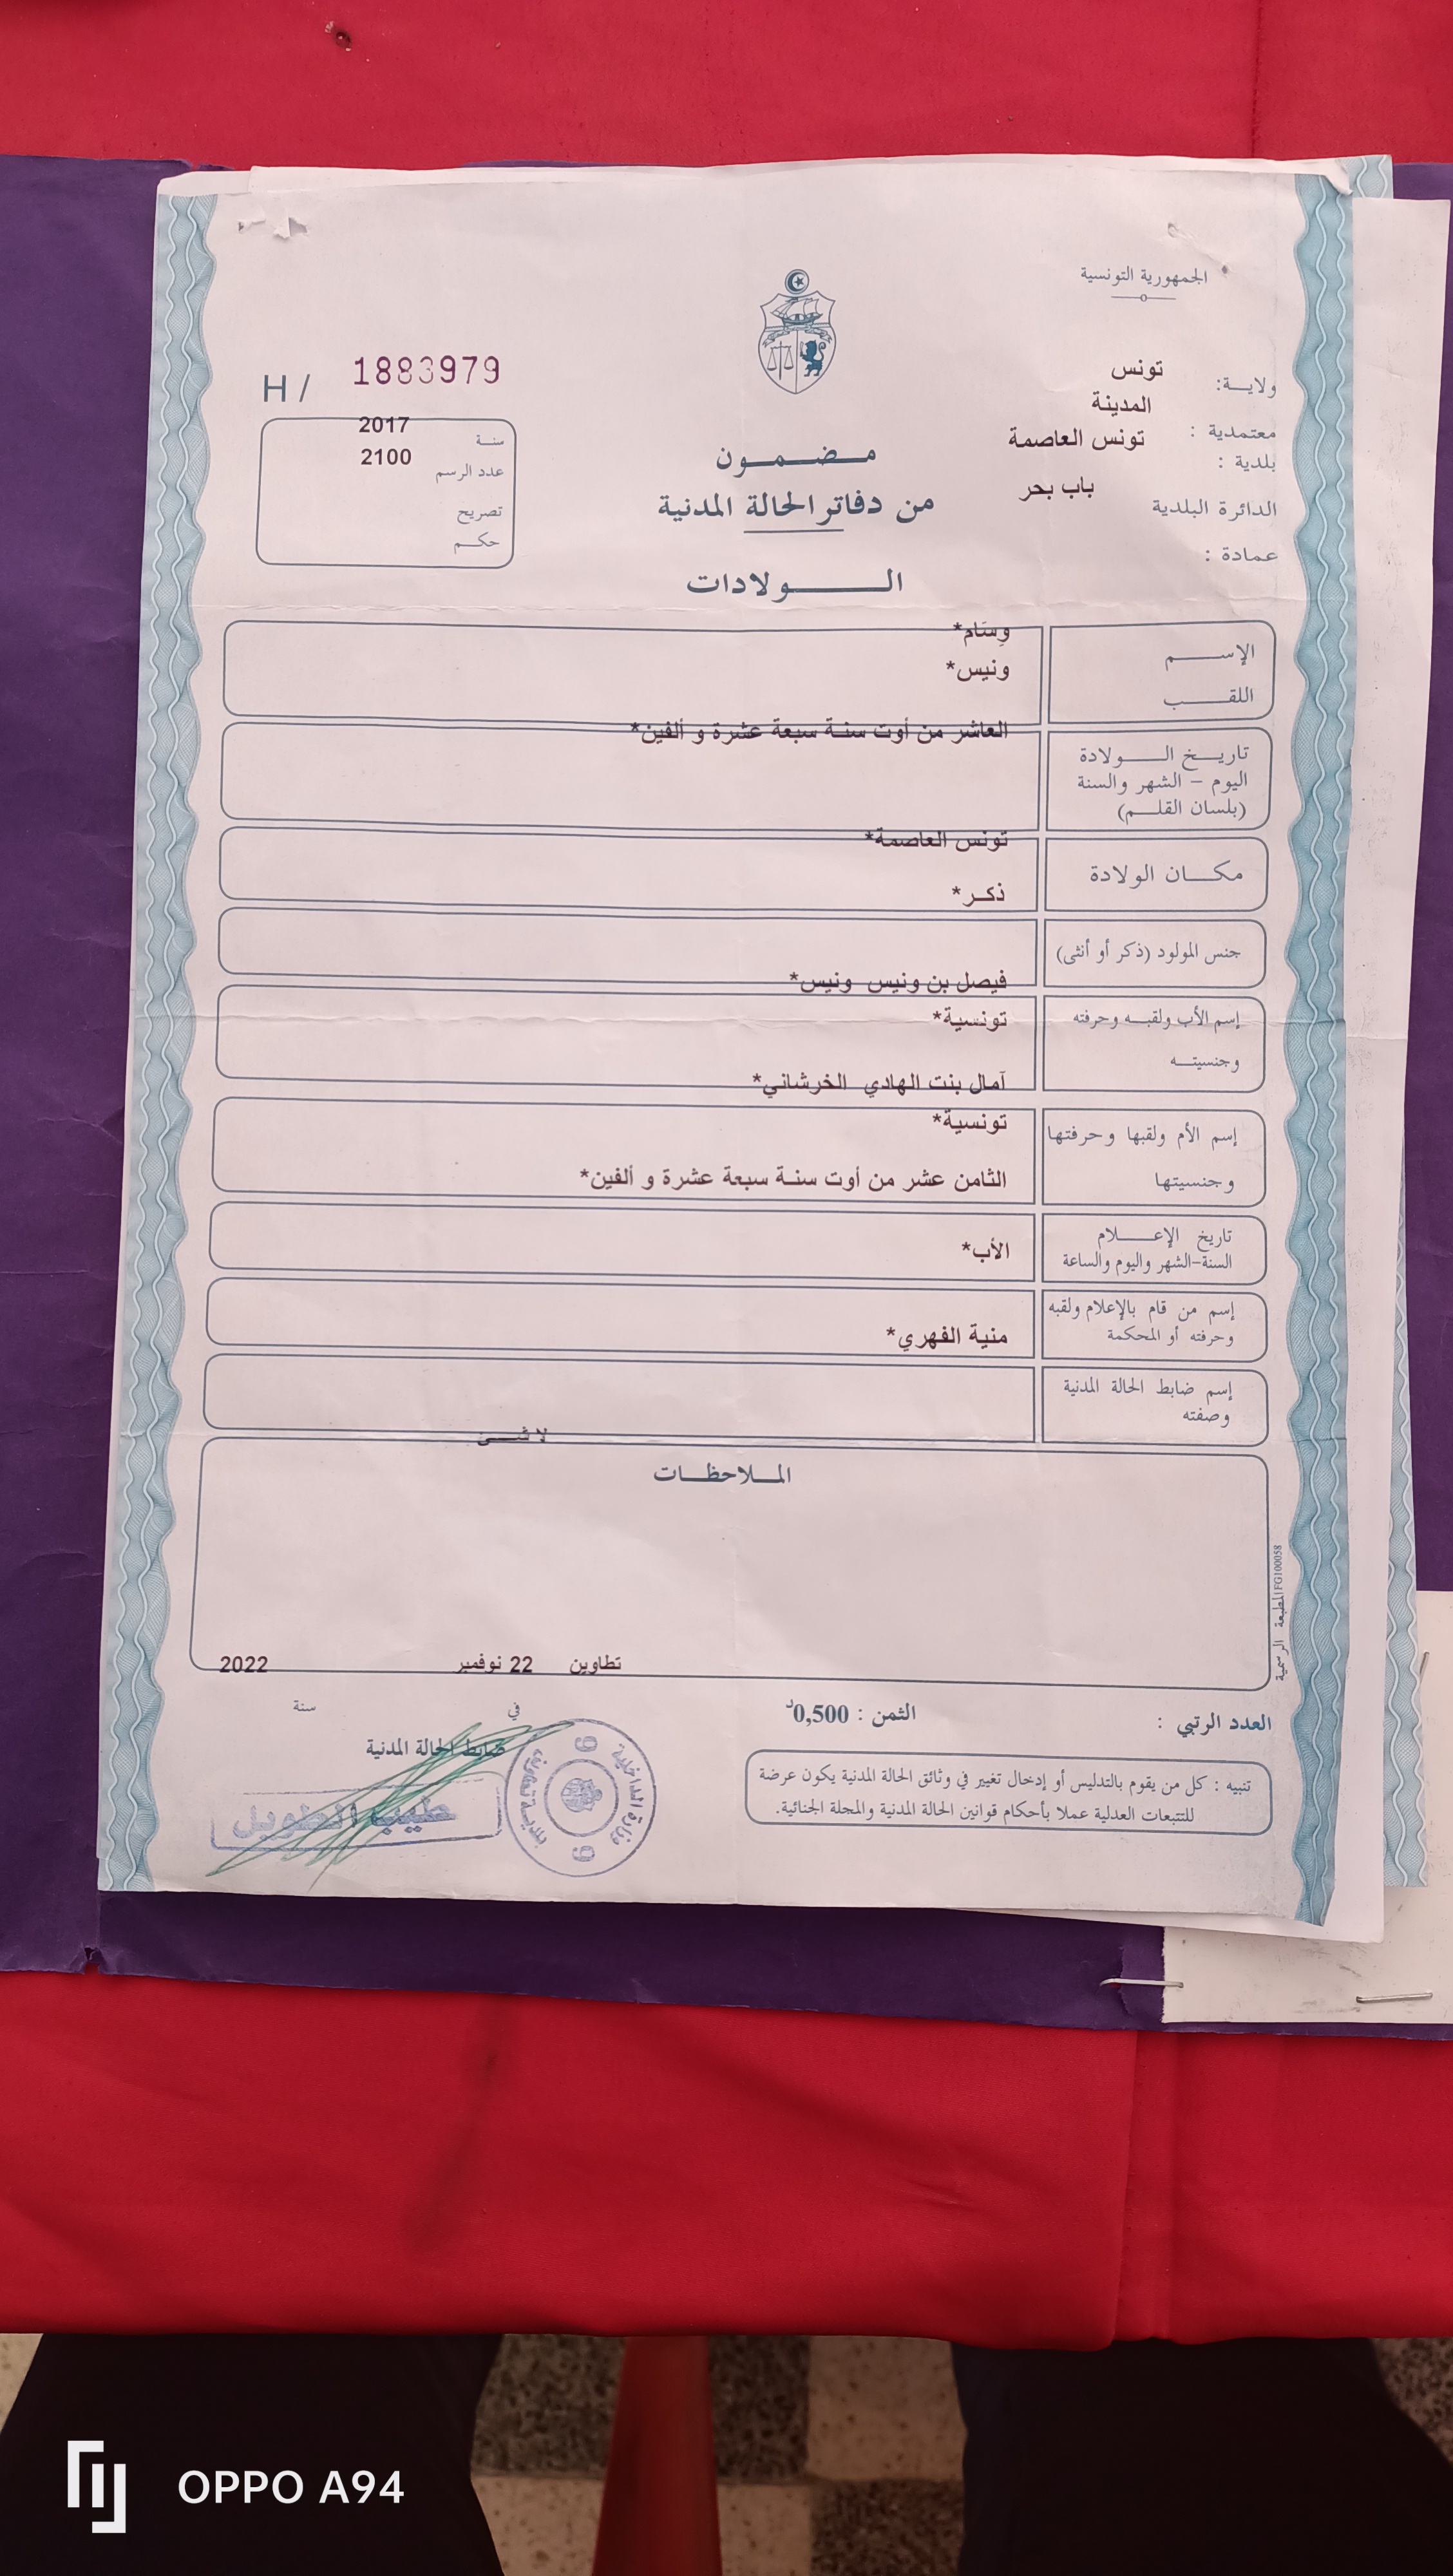 الجمهورية التونسية
ولايــة: تونس
المدينة
معتمدية :
تونس العاصمة
بلدية :
باب بحر
الدائرة البلدية
عمادة :
H / 1883979
2017
سنــة
2100
عدد الرسم
تصريح
حكــم
مــضــمــون
من دفاتر الحالة المدنية
الــــولادات
وِسَام*
الإســــم
ونيس*
اللقــــب
العاشر من أوت سنـة سبعة عشرة و ألفين*
تاريــخ الــــولادة
اليوم – الشهر والسنة
(بلسان القلــم)
تونس العاصمة*
مكــان الولادة
ذكـر*
جنس المولود (ذكر أو أنثى)
فيصل بن ونيس ونيس*
إسم الأب ولقبــه وحرفته
تونسية*
وجنسيتــه
آمال بنت الهادي الخرشاني*
تونسية*
إسم الأم ولقبها وحرفتها
وجنسيتها
الثامن عشر من أوت سنـة سبعة عشرة و ألفين*
تاريخ الإعــــلام
السنة-الشهر واليوم والساعة
الأب*
إسم من قام بالإعلام ولقبه
وحرفته أو المحكمة
منية الفهري*
إسم ضابط الحالة المدنية
وصفته
لا شــى
المــلاحظــات
المطبعة الرسمية FG100058
تطاوين 22 نوفمبر 2022
في سنة
العدد الرتبي :
الثمن : 0,500د
ضابط الحالة المدنية
تنبيه : كل من يقوم بالتدليس أو إدخال تغيير في وثائق الحالة المدنية يكون عرضة
للتتبعات العدلية عملا بأحكام قوانين الحالة المدنية والمجلة الجنائية.
طيب الطويل
وزارة الداخلية
9
9
OPPO A94